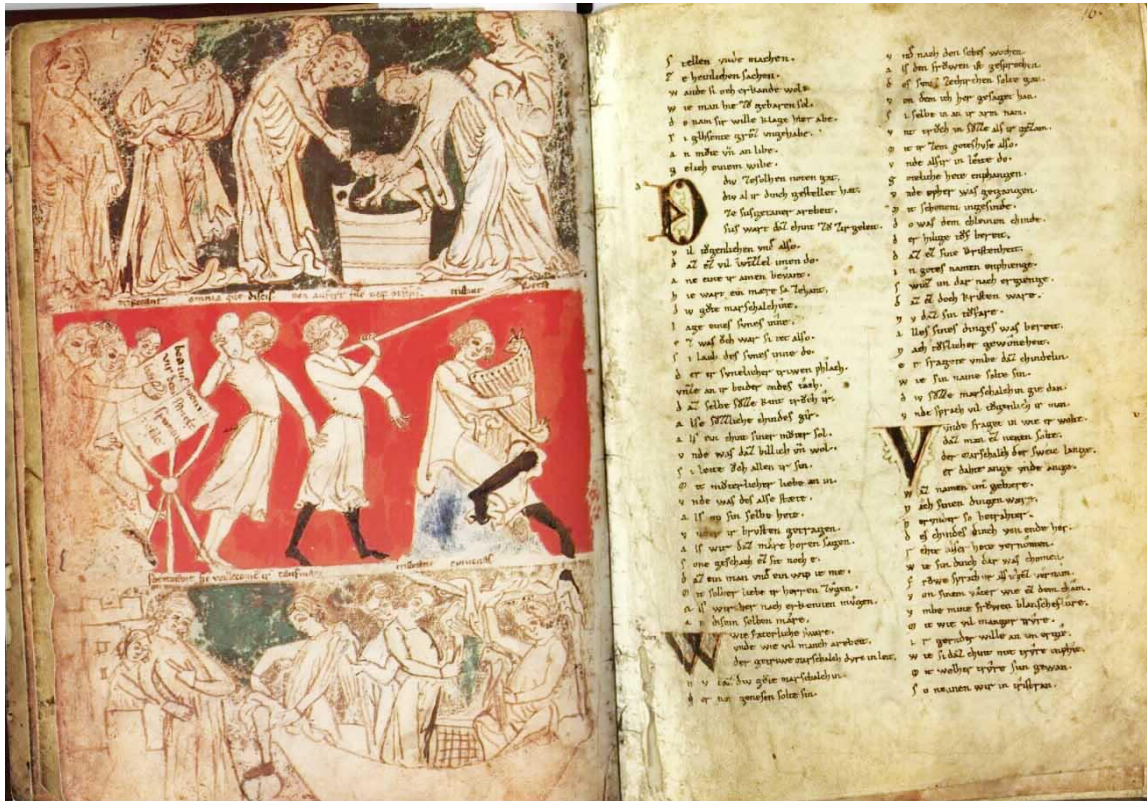 omnia que discis
S tellen vnde machen.
Z e heinlichen sachen.
w ande si och erkande wol.
w ie man hie zv gebaren sol.
d o nam sir wille klage hier abe.
s i glihsente groz vngehabe.
a n mvte vn an libe.
g elich einem wibe.
D div ze solhen noten gat.
div al ir dinch gestellet hat.
Ze susgetaner arebeit.
sus wart daz chint zv zir geleit.
v il tögenlichen vnd also.
d az ez vil wizzel ieman do.
a ne eine ir amen bevant.
h ie wart ein mære sa zehant.
d iv gvte marschalchine.
l age eines svnes inne.
e z was och war si tet also.
s i lach des svnes inne do.
d er ir svnelicher triwen phlach.
vnze an ir beider endes tach.
d az selbe svzze kint trvch ir.
a lse svzzliche chindes gir.
a ls ein chint siner mvter sol.
v nde was daz billich vn wol.
s i leite ir allen ir sin.
m it mvterlicher liebe an in.
v nde was des alse stæte.
a ls ob sin selbe hete.
v nder ir brvsten getragen.
a ls wir daz mære horen sagen.
s one geschach ez sit noch e.
d az ein man vnd ein wip ie me.
m it solher liebe ir herren zvgen.
a ls wir her nach erkennen mvgen.
a n disem selben mære.
W wie faterliche sware.
vnde wie vil manch arebeit.
der getriwe marschalch dvre in leit.
n v daz div gvte marschalchin.
g er nas genesen solte sin.
v nd nach den sehes wochen.
a ls den frowen ist gesprochen.
d es svns ze chirchen solte gan.
v on dem ich her gesaget han.
s i selbe in an ir arm nam.
v nt trvch in svzze als ir gezam.
m it ir zem goteshvse also.
v nde als ir in leite do.
g oteliche hete enphangen.
v nde opher was gegangen.
m it schonem ingesinde.
d o was dem chleinen chinde.
d er heilige tvf bereit.
d az ez sine kristenheit.
i n gotes namen enphienge.
s wiez im dar nach ergienge.
d az ez doch kristen ware.
n v daz sin tvfare.
a lles sines dinges was bereit.
n ach tvflicher gewoneheit.
e r fragete vmbe daz chindelin.
w ie sin name solte sin.
d iv svzze marschalchin gie dan.
v nde sprach vil tögenlich ir man.
V vnde fraget in wie er wolte.
daz man ez nenen solte.
der marschalch der sweic lange.
er dahte ange vnde ange.
w az namen im gebære.
n ach sinen dingen ware.
d es chindes dinch von ende her.
r ehte als er hete vernomen.
w ie sin dinch dar was chomen.
f rowe sprach er als ich vernam.
v on sinem vater wie ez dem cham.
v mbe mine frowen blanscheflure.
m it wie vil manger tryre.
i r gerender wille an im ergie.
w ie si daz chint mit tryre enphie.
m it welher tryre si in gewan.
s o nennen wir in tristran.